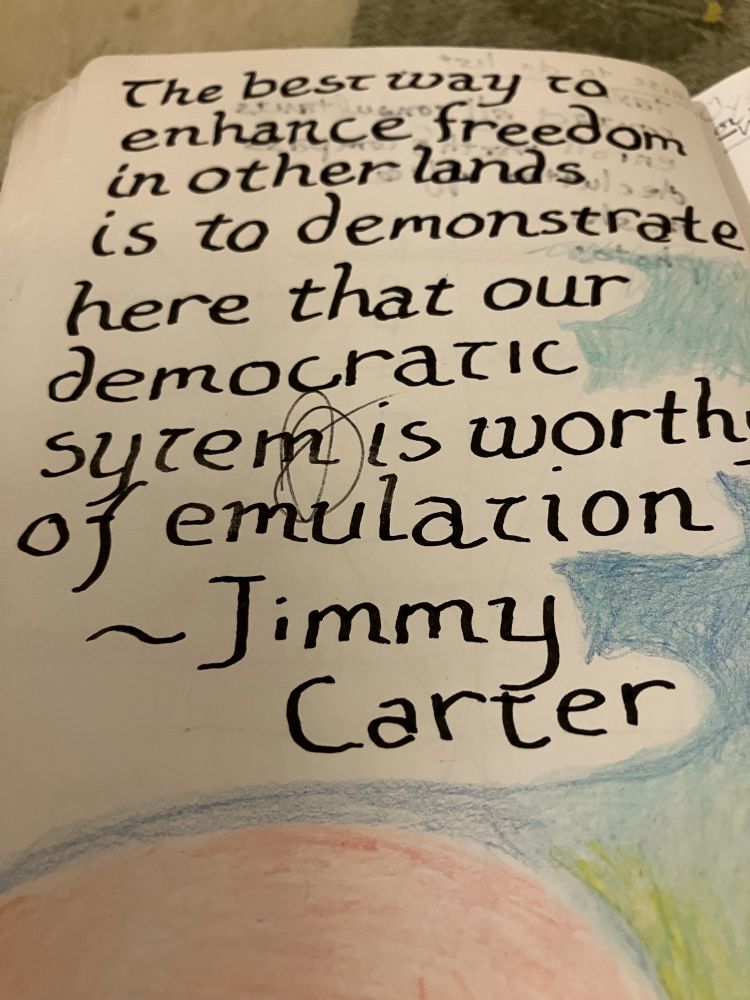 The best way to
enhance freedom
in other lands
is to demonstrate
here that our
democratic
sytem is worthy
of emulation
~ Jimmy
Carter